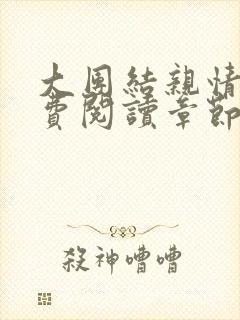 大團結親情
費閱讀章節
殺神嘈嘈